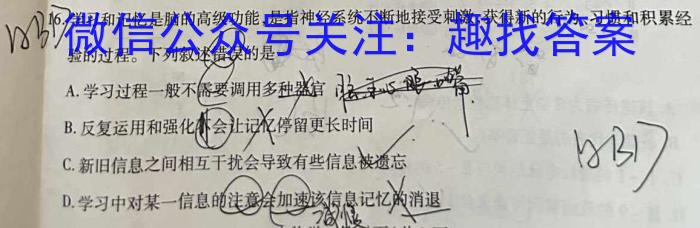 16.学习和记忆是脑的高级功能,是指神经系统不断地接受刺激,获得新的行为、习惯和积累经
微信公众号关注：趣找答案
验的过程。下列叙述错误的是
A.学习过程一般不需要调用多种器官
B.反复运用和强化不会让记忆停留更长时间
C.新旧信息之间相互干扰会导致有些信息被遗忘
D.学习中对某一信息的注意会加速该信息记忆的消退
减慢